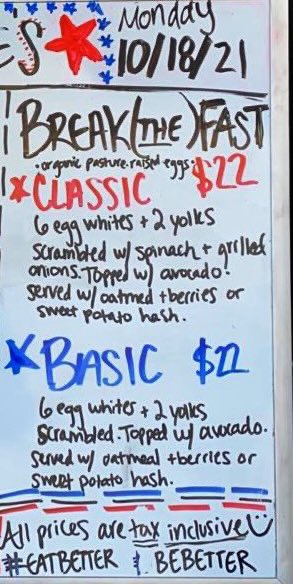 ES Monday
10/18/21
BREAK(THE)FAST
•organic pasture-raised eggs•
*CLASSIC $22
6 egg whites + 2 yolks
scrambled w/ spinach + grilled
onions. Topped w/ avocado.
served w/ oatmeal +berries or
sweet potato hash.
*BASIC $22
6 egg whites + 2 yolks
scrambled. Topped w/ avocado.
served w/ oatmeal +berries or
sweet potato hash.
All prices are tax inclusive
#EATBETTER & BEBETTER